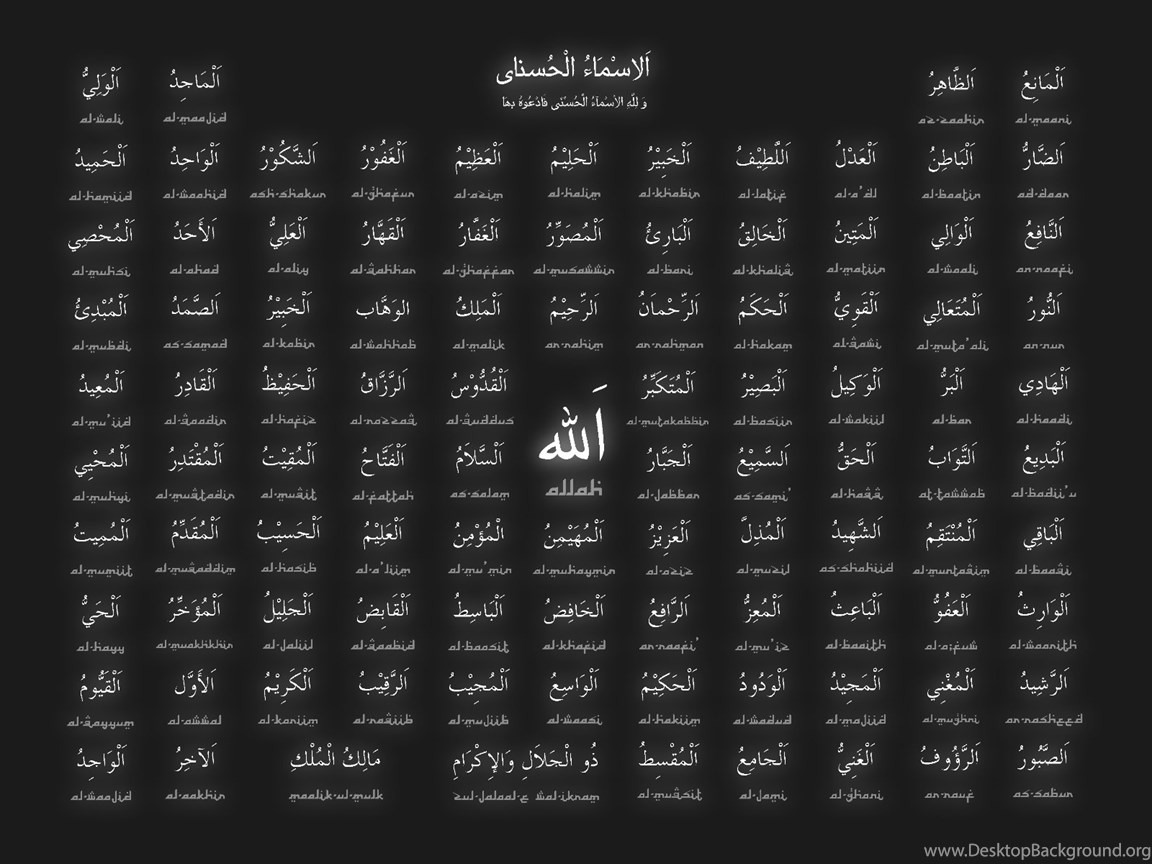 اَلاِسْمَاءُ الْحُسنای
وَ لِلّٰهِ الاَسْمَاءُ الْحُسْنٰى فَادْعُوهُ بِهَا
اَلْمَانِعُ اَلظَّاهِرُ اَلْمَاجِدُ اَلْوَلِيُّ
al-wali al-maajid az-zaahir al-maani
اَلضَّارُّ اَلْبَاطِنُ اَلْعَدْلُ اَللَّطِيْفُ اَلْخَبِيْرُ اَلْحَلِيْمُ اَلْعَظِيْمُ اَلْغَفُوْرُ اَلشَّكُوْرُ اَلْوَاحِدُ اَلْحَمِيدُ
al-hamiid al-waahid ash-shakur al-ghafur al-azim al-halim al-khabir al-latif al-a'dl al-baatin ad-daar
اَلنَّافِعُ اَلْوَالِي اَلْمَتِينُ اَلْخَالِقُ اَلْبَارِئُ اَلْمُصَوِّرُ اَلْغَفَّارُ اَلْقَهَّارُ اَلْعَلِيُّ اَلأَحَدُ اَلْمُحْصِي
al-muhsi al-ahad al-aliy al-qahhar al-ghaffar al-musawwir al-bari al-khaliq al-matiin al-waali an-naafi
اَلنُّورُ اَلْمُتَعَالِي اَلْقَوِيُّ اَلْحَكَمُ اَلرَّحْمَانُ اَلرَّحِيْمُ اَلْمَلِكُ الوَهَّاب اَلْخَبِيْرُ اَلصَّمَدُ اَلْمُبْدِئُ
al-mubdi as-samad al-kabir al-wahhab al-malik ar-rahim ar-rahman al-hakam al-qawi al-muta'ali an-nur
اَلْهَادِي اَلْبَرُّ اَلْوَكِيلُ اَلْبَصِيْرُ اَلْمُتَكَبِّرُ اَلْقُدُّوْسُ اَلرَّزَّاقُ اَلْحَفِيْظُ اَلْقَادِرُ اَلْمُعِيدُ
al-mu'iid al-qaadir al-hafiz al-razzaq al-quddus al-mutakabbir al-basiir al-wakiil al-bar al-haadi
اَللّٰه
allah
اَلْبَدِيعُ اَلتَّوَابُ اَلْحَقُّ اَلسَّمِيْعُ اَلْجَبَّارُ اَلسَّلاَمُ اَلْفَتَّاحُ اَلْمُقِيْتُ اَلْمُقْتَدِرُ اَلْمُحْيِي
al-muhyi al-muqtadir al-muqit al-fattah as-salam al-jabbar as-sami' al-haqq at-tawwab al-badii'u
اَلْبَاقِي اَلْمُنْتَقِمُ اَلشَّهِيدُ اَلْمُذِلَّ اَلْعَزِيْزُ اَلْمُهَيْمِنُ اَلْمُؤْمِنُ اَلْعَلِيْمُ اَلْحَسِيْبُ اَلْمُقَدِّمُ اَلْمُمِيتُ
al-mumiit al-muqaddim al-hasib al-a'liim al-mu'min al-muhaymin al-aziz al-muzil as-shahiid al-muntaqim al-baaqi
اَلْوَارِثُ اَلْعَفُوُّ اَلْبَاعِثُ اَلْمُعِزُّ اَلرَّافِعُ اَلْخَافِضُ اَلْبَاسِطُ اَلْقَابِضُ اَلْجَلِيْلُ اَلْمُؤَخِّرُ اَلْحَيُّ
al-hayy al-muakhkhir al-jaliil al-qaabid al-baasit al-khafid ar-raafi' al-mu'iz al-baaith al-afuw al-waarith
اَلرَّشِيدُ اَلْمُغْنِي اَلْمَجِيْدُ اَلْوَدُودُ اَلْحَكِيْمُ اَلْوَاسِعُ اَلْمُجِيْبُ اَلرَّقِيْبُ اَلْكَرِيْمُ اَلأَوَّل اَلْقَيُّومُ
al-qayyum al-awwal al-kariim al-raqiib al-mujiib al-waasi al-hakiim al-wadud al-majiid al-mughni ar-rasheed
اَلصَّبُورُ اَلرَّؤُوفُ اَلْغَنِيُّ اَلْجَامِعُ اَلْمُقْسِطُ ذُو الْجَلاَلِ وَالإِكْرَامِ مَالِكُ الْمُلْكِ اَلآخِرُ اَلْوَاجِدُ
al-waajid al-aakhir maalik-ul-mulk zul-jalaal-e wal-ikram al-muqsit al-jami al-ghani ar-rauf as-sabur
www.DesktopBackground.org